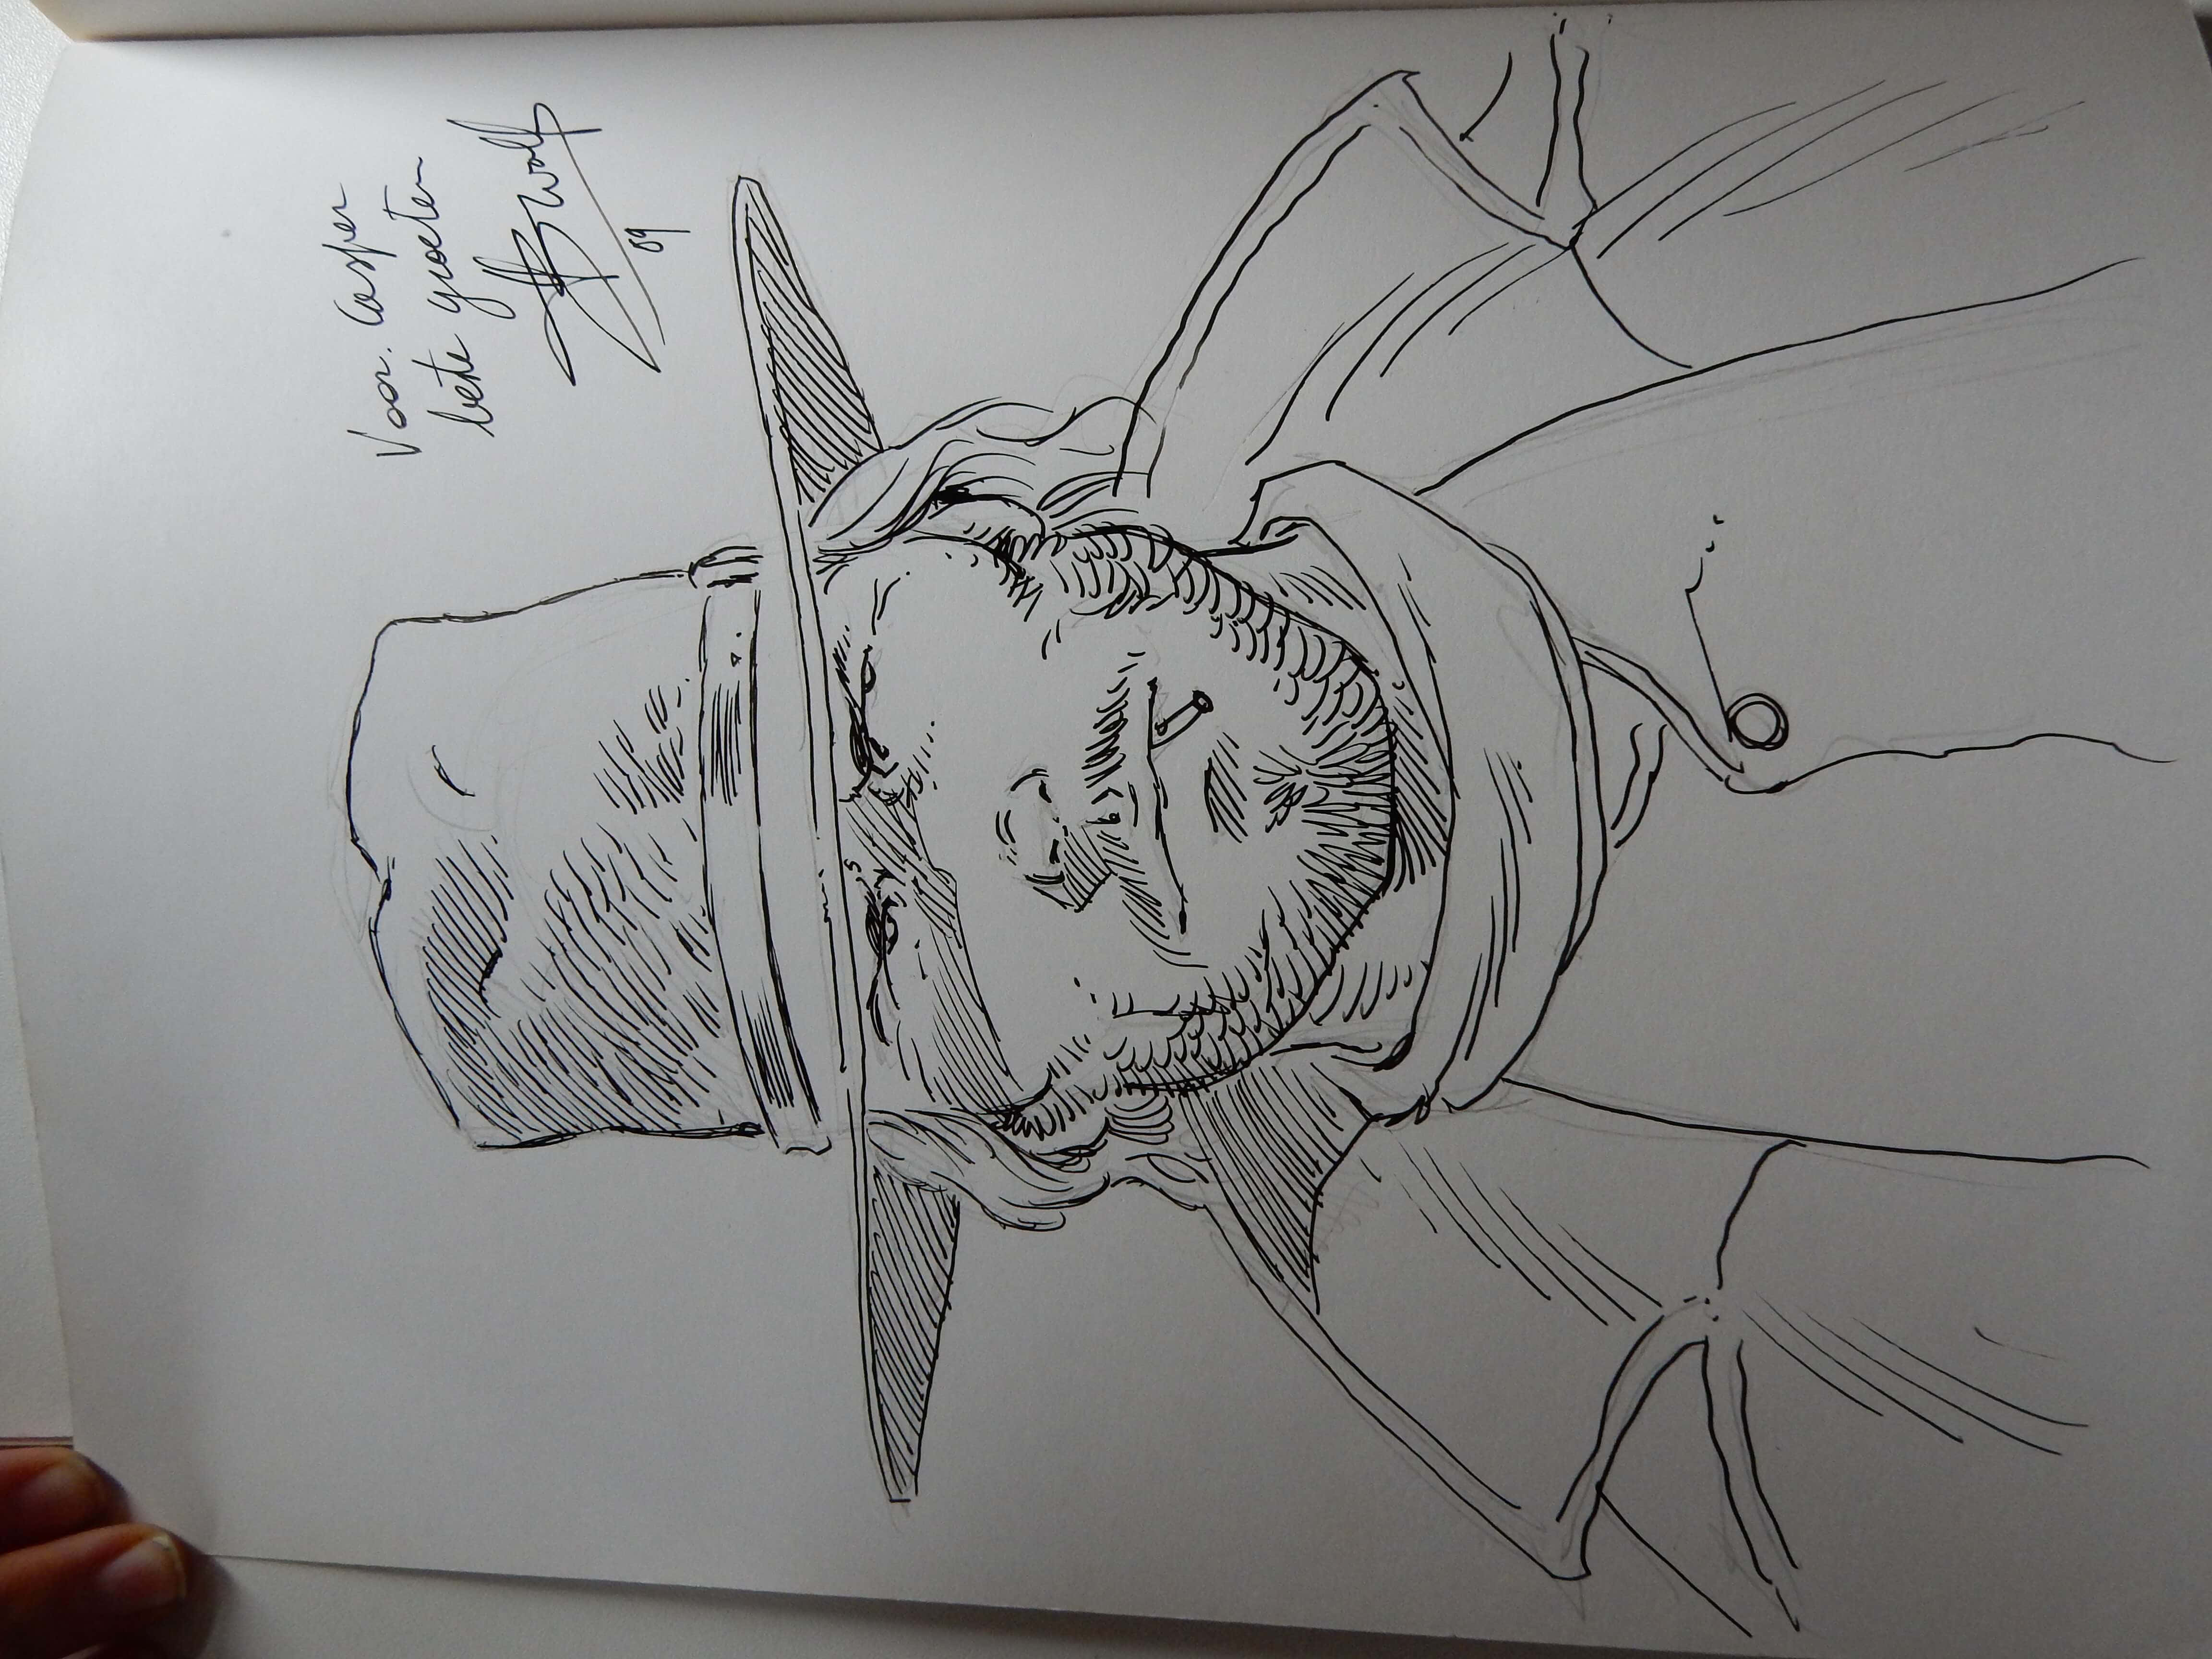 Voor. Casper
beste groeten
Wolf
09